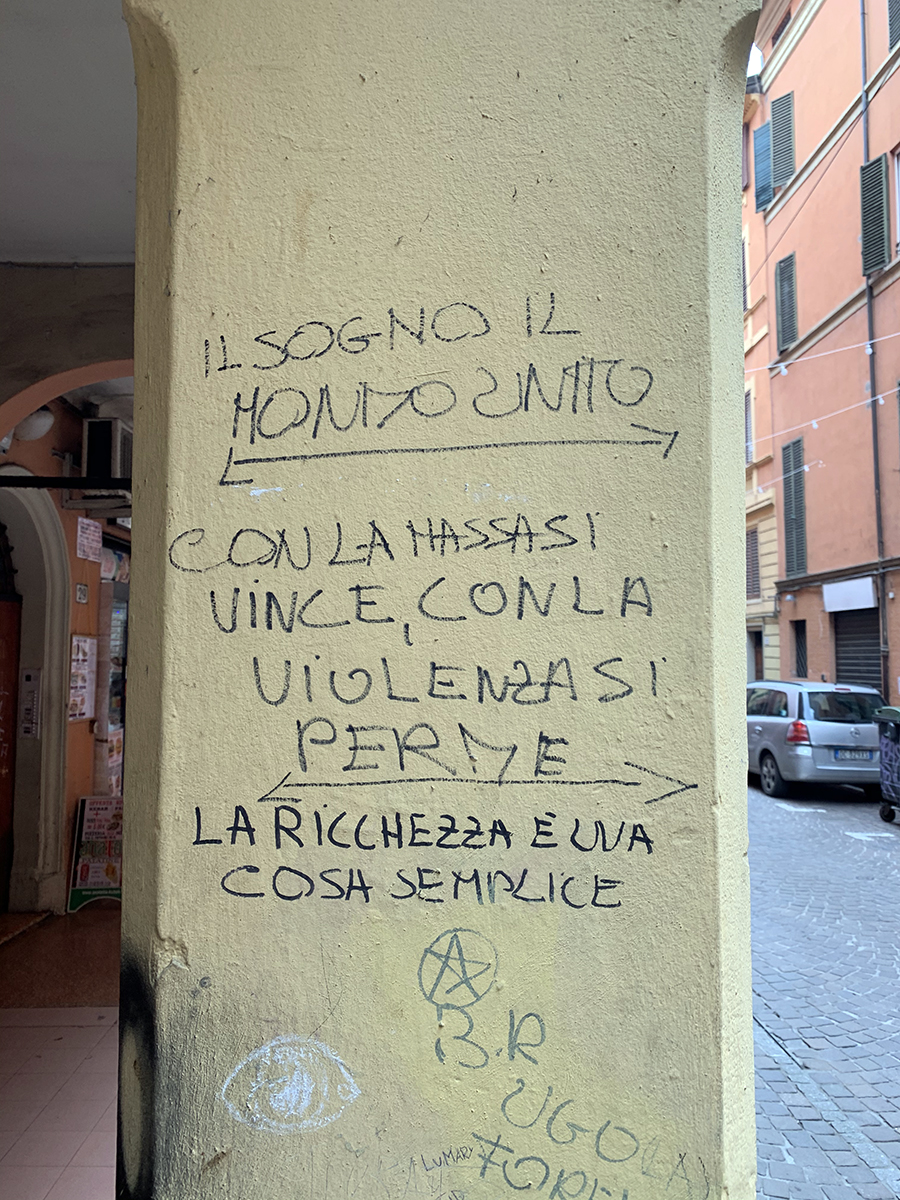 IL SOGNO IL
MONDO UNITO
CON LA MASSA SI
VINCE, CON LA
VIOLENZA SI
PERDE
LA RICCHEZZA È UNA
COSA SEMPLICE
B.R
UGO
LUMARY